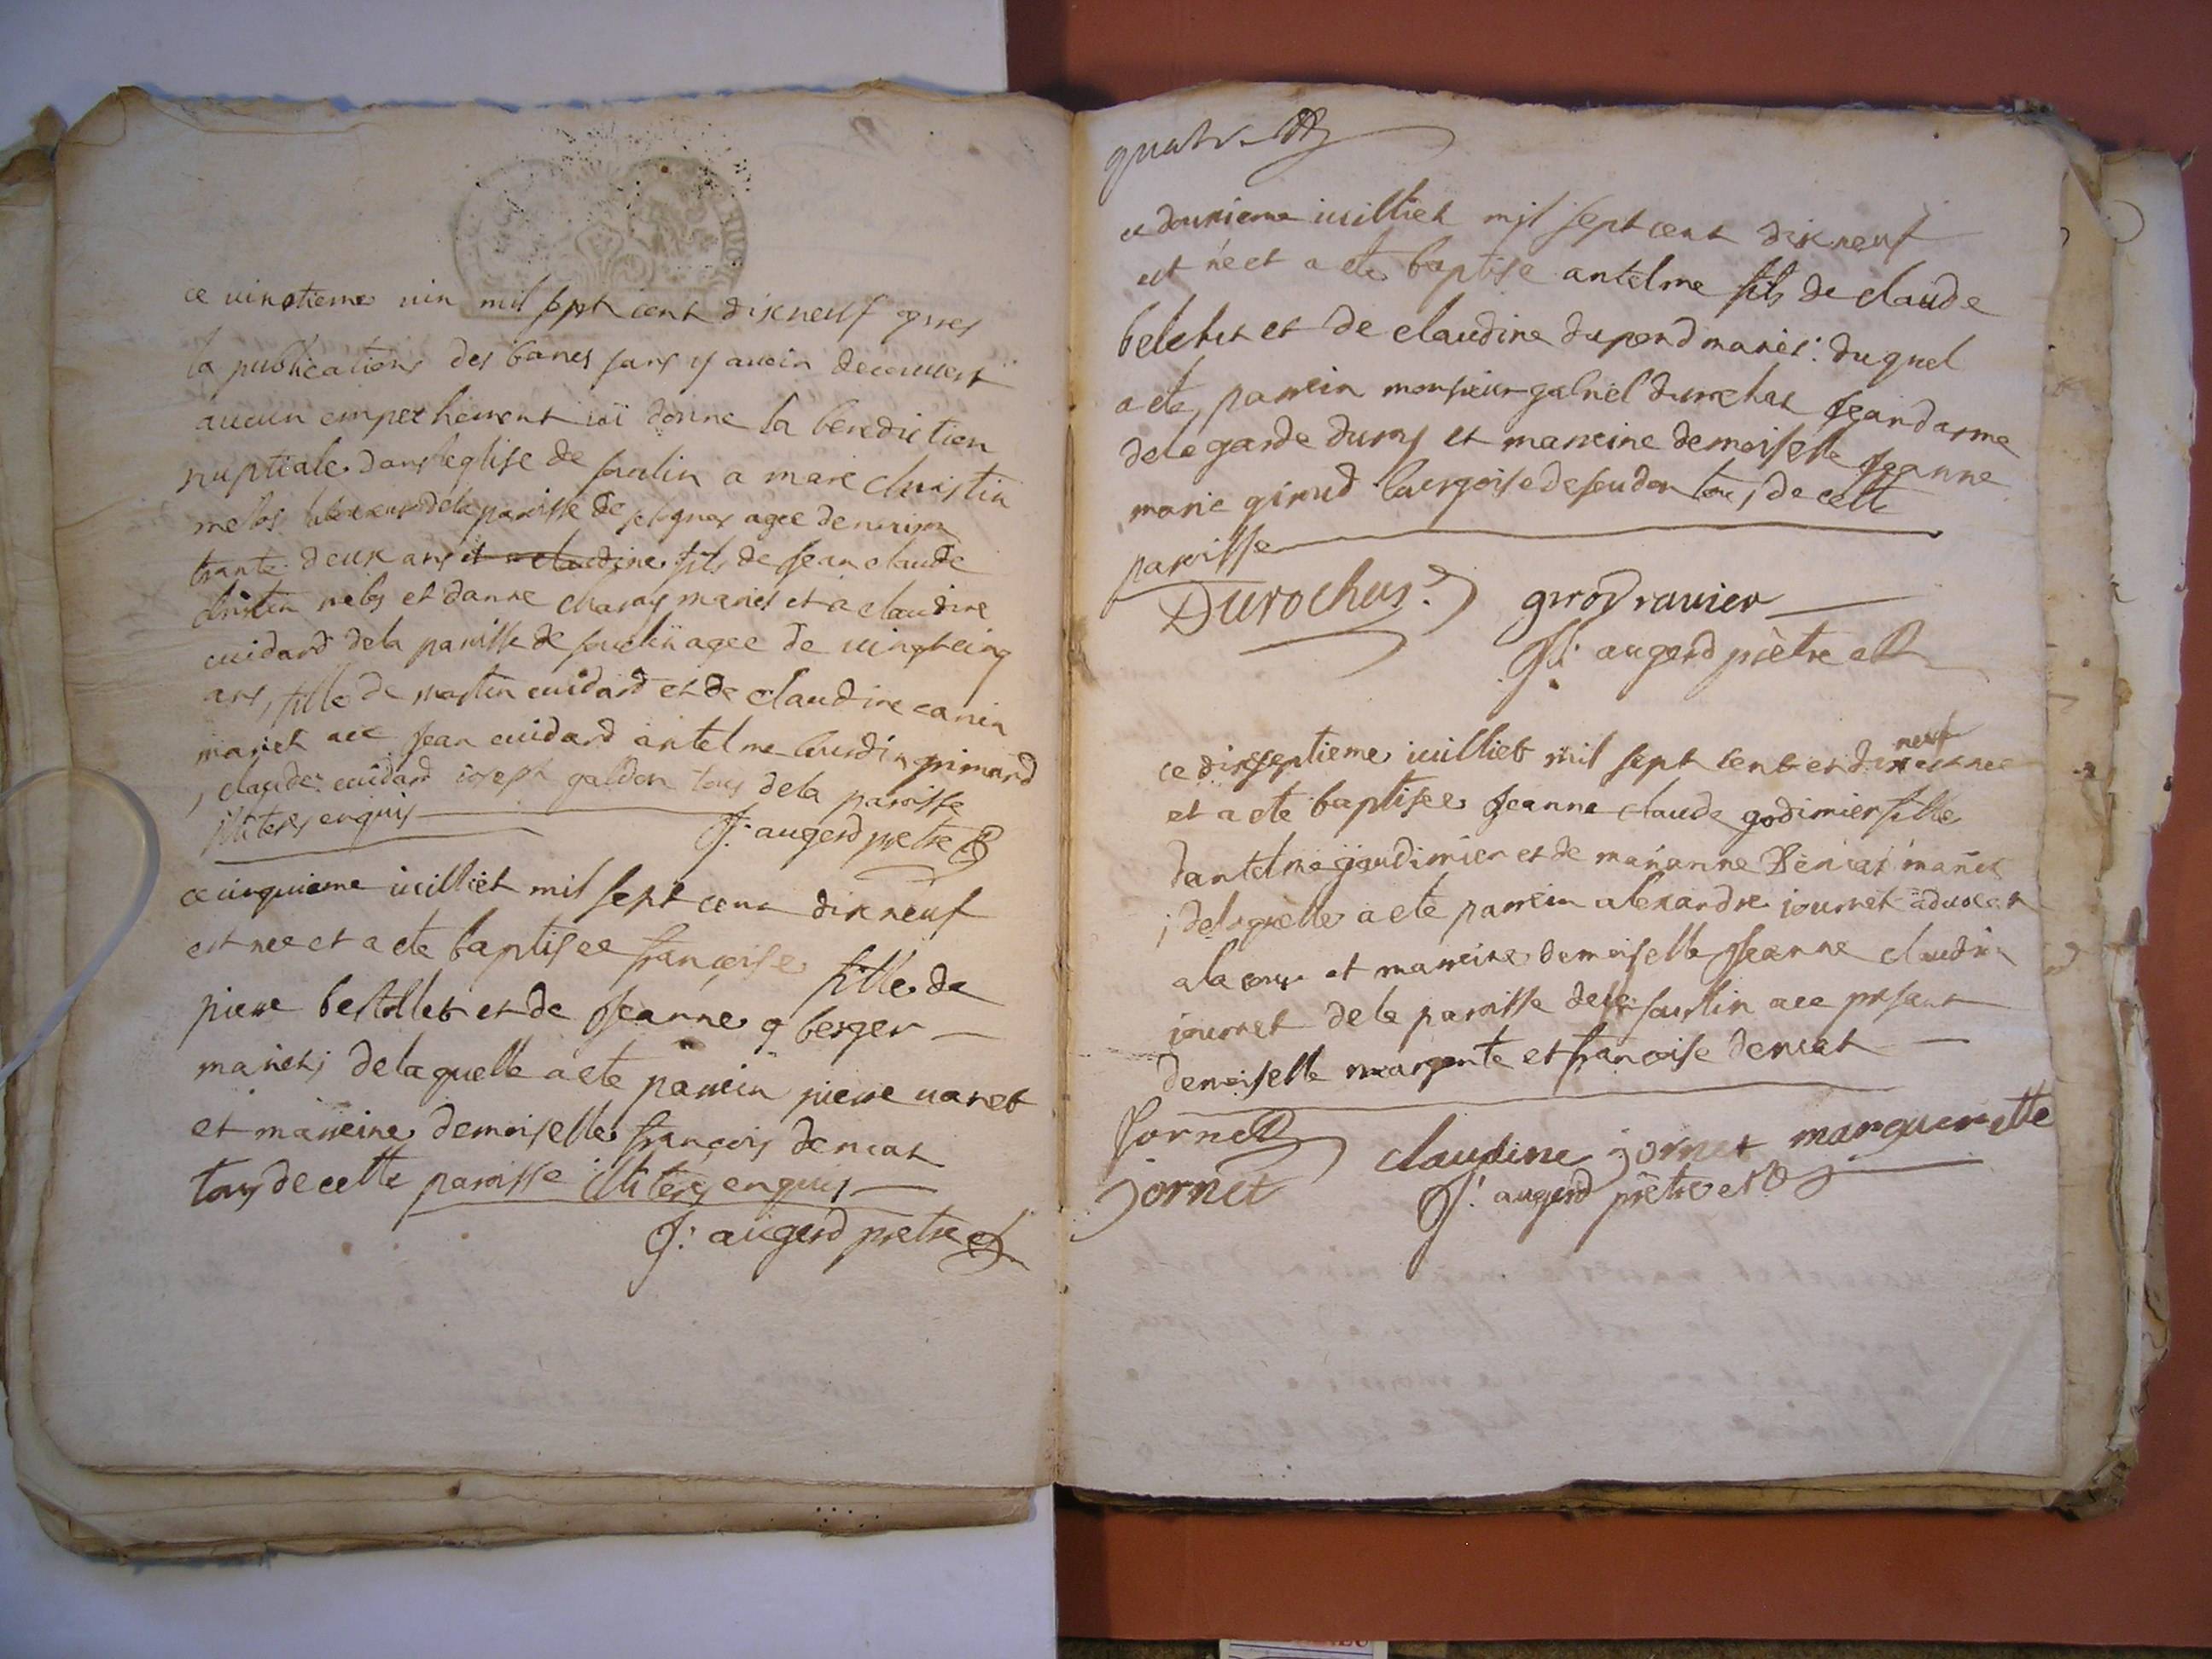 ce vinotieme iuin mil sept cent dixneuf apres
la publications des bancs sans y avoir decouvert
aucun empechement iai donne la benediction
nuptiale dans leglise de soulin a marc christin
melos laboureur dela paroisse de agee denviron
trante deux ans et a claudine fils de Jean claude
christin melos et danne maries et a claudine
cuidard dela paroisse de soulin agee de vingt cinq
ans, fille de martin cuidard et de claudine canin
mariet ace Jean cuidard antelme bourdin grimand
, claude cuidard ioseph galdon tous dela paroisse
illiteres enquis J: augerd pretre
ce cinquieme iuilliet mil sept cent dixneuf
est nee et a ete baptisee françoise fille de
pierre bertollet et de Jeanne berger
mariets delaquelle a ete parrein pierre varet
et marreine demoiselle françois dencat
tous de cette paroisse illiteres enquis
J: augerd pretre
quatr
ce douzieme iuilliet mil sept cent dixneuf
est né et a ete baptise antelme fils de claude
belehus et de claudine dupond maries: duquel
a ete, parrein monsieur gabriel durochat Jeandarme
dela garde du roy et marreine demoiselle Jeanne
marie girod tous de cette
paroisse
Durochus girod ravier
J: augerd prètre
ce dixseptieme iuilliet mil sept cent et dix neuf est nee
et a ete baptisee Jeanne claude godimier fille
dantelme gaudimier et de marianne Dencat mariet
; delaquelle a ete parrein alexandre iournet advocat
ala cour et marreine demoiselle Jeanne claudin
iournet dela paroisse de soulin ace presant
demoiselle margerite et francoise dencat
Jornet claudine jornet marguerette
jornet J: augerd prètre